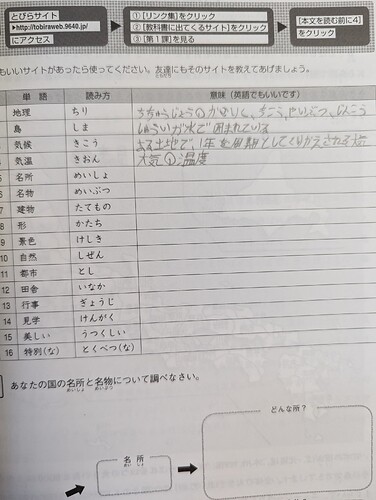 とびらサイト
▶http://tobiraweb.9640.jp/
にアクセス
① [リンク集]をクリック
② [教科書に出てくるサイト]をクリック
③ [第1課]を見る
[本文を読む前に4]
をクリック
もいいサイトがあったら使ってください。友達にもそのサイトを教えてあげましょう。
単語 読み方 意味(英語でもいいです)
地理 ちり
島 しま しゅういが水で囲まれている
気候 きこう
気温 きおん 大気の温度
5 名所 めいしょ
6 名物 めいぶつ
7 建物 たてもの
8 形 かたち
9 景色 けしき
10 自然 しぜん
11 都市 とし
12 田舎 いなか
13 行事 ぎょうじ
14 見学 けんがく
15 美しい うつくしい
16 特別(な) とくべつ(な)
あなたの国の名所と名物について調べなさい。
どんな所?
名所